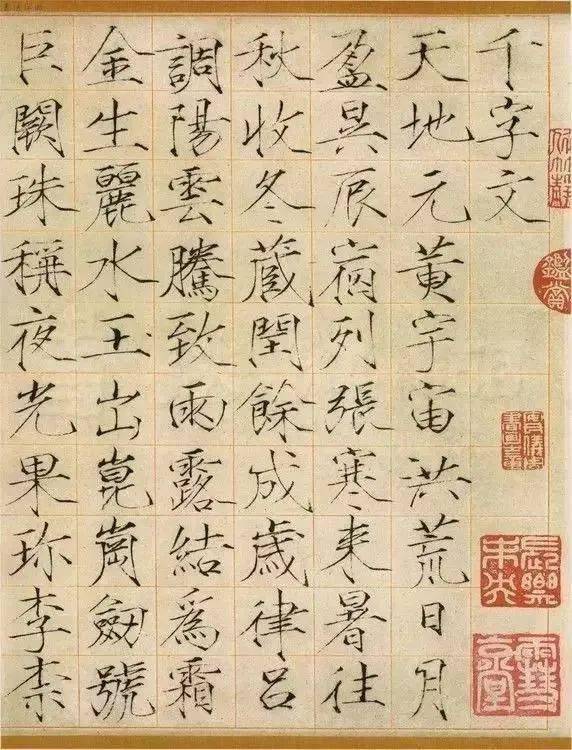 千字文
天地元黄宇宙洪荒日月
盈昃辰宿列張寒来暑往
秋收冬蔵閏餘成歲律吕
調陽雲騰致雨露結爲霜
金生麗水玉出崑崗劍號
巨闕珠稱夜光果珎李柰
鑑賞